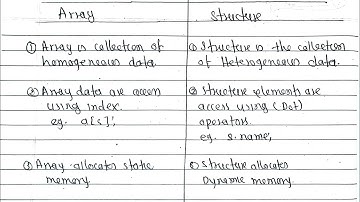 Array
① Array is collection of
homogeneous data.
② Array data are access
using index.
eg. a[5];
③ Array allocates static
memory.
Structure
① Structure is the collection
of Heterogeneous data.
② Structure elements are
access using (Dot)
operators.
eg. s.name;
③ Structure allocates
Dynamic memory.